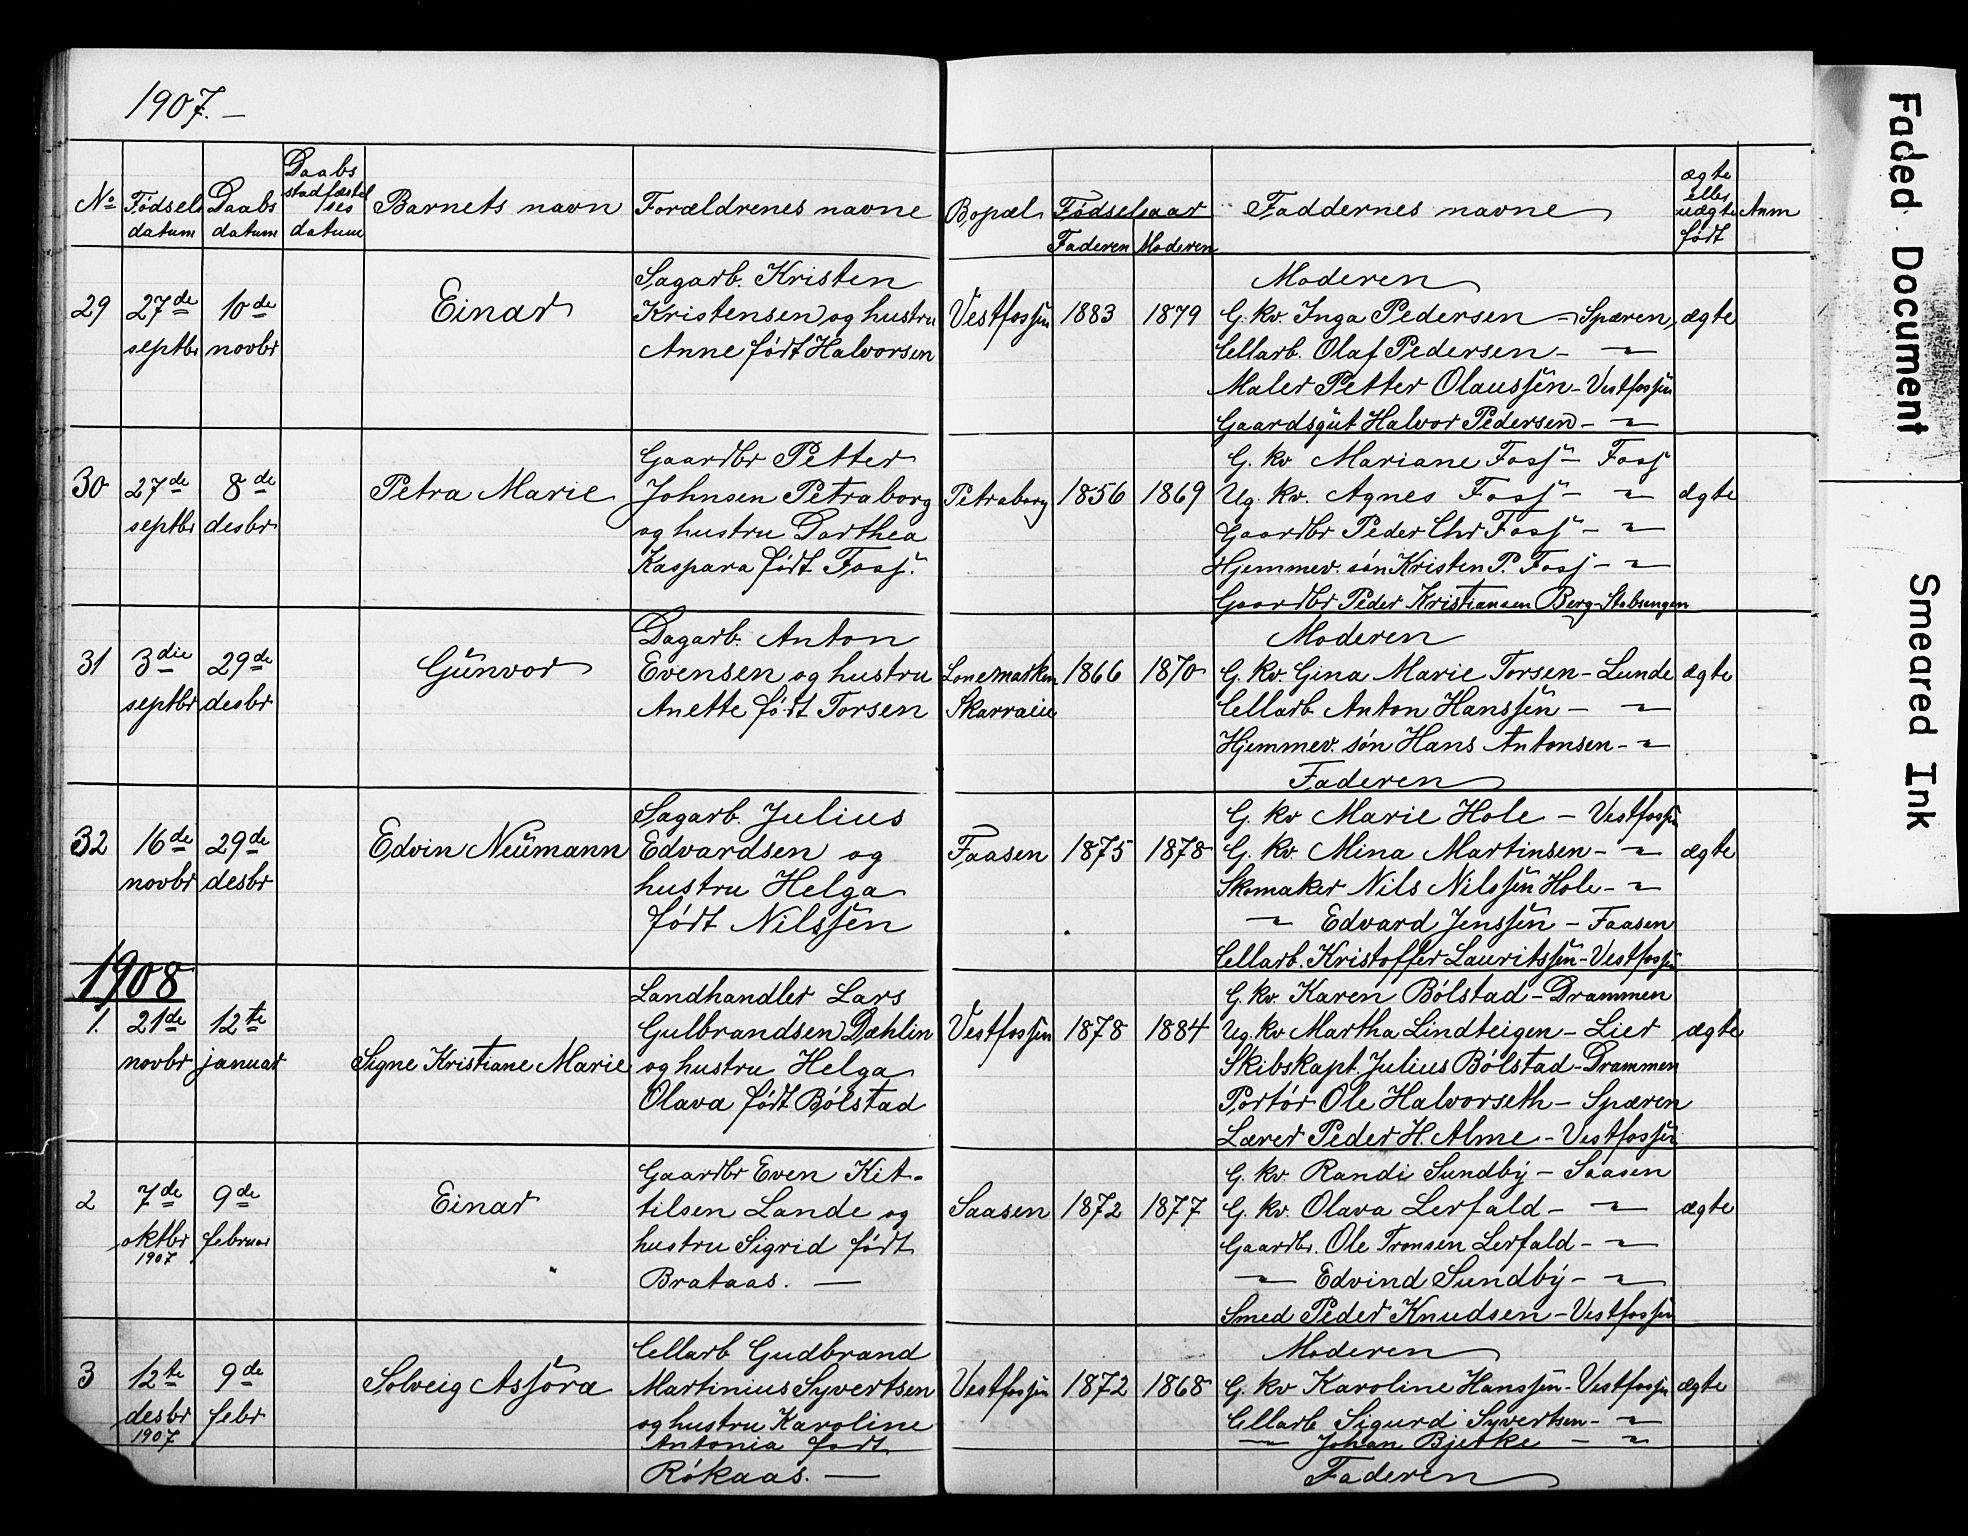 1907.—
No
Fødsels datum
Daabs datum
Daabs stadfæstelses datum
Barnets navn
Forældrenes navne
Bopæl
Fødselsaar
Faderen
Moderen
Faddernes navne
ægte eller uægte født
Anm
29
27de septbr
10de novbr
Einar
Sagarb. Kristen
Kristensen og hustru
Anne født Halvorsen
Vestfossen
1883
1879
Moderen
G. kv. Inga Pedersen – Spæren,
Cellarb. Olaf Pedersen – 〃
Maler Petter Olaussen – Vestfossen
Gaardsgut Halvor Pedersen – 〃
ægte
30
27de septbr
8de desbr
Petra Marie
Gaardbr Petter
Johnsen Petraborg
og hustru Dorthea
Kaspara født Foss.
Petraborg
1856
1869
G. kv Mariane Foss – Foss
Ug. kv. Agnes Foss – 〃
Gaardbr Peder Chr Foss – 〃
Hjemmev. søn Kristen P. Foss – 〃
Gaardbr Peder Kristiansen Berg – Stabsengen
ægte
31
3die septbr
29de desbr
Gunvor
Dagarb. Anton
Evensen og hustru
Anette født Torsen
Lonemarken
Skarraeie
1866
1870
Moderen
G. kv. Gina Marie Torsen – Lunde
Cellarb. Anton Hanssen – 〃
Hjemmev. søn Hans Antonsen – 〃
Faderen
ægte
32
16de novbr
29de desbr
Edvin Neumann
Sagarb. Julius
Edvardsen og
hustru Helga
født Nilssen
Faasen
1875
1878
G. kv Marie Hole – Vestfossen
G. kv. Mina Martinsen – 〃
Skomaker Nils Nilssen Hole – 〃
〃 Edvard Jenssen – Faasen
Cellarb. Kristoffer Lauritssen – Vestfossen
ægte
1908
1.
21de novbr
12te januar
Signe Kristiane Marie
Landhandler Lars
Gulbrandsen Dæhlin
og hustru Helga
Olava født Bölstad
Vestfossen
1878
1884
G. kv. Karen Bölstad – Drammen
Ug. kv Martha Lindteigen – Lier
Skibskapt. Julius Bölstad – Drammen
Portör Ole Halvorseth – Spæren
Lærer Peder H. Alme – Vestfossen
ægte
2
7de oktbr 1907
9de februar
Einar
Gaardbr Even Kit-
tilsen Lande og
hustru Sigrid født
Brataas. —
Saasen
1872
1877
G. kv Randi Sundby – Saasen
G. kv. Olava Lerfald – 〃
Gaardbr. Ole Tronsen Lerfald – 〃
〃 Edvind Sundby – 〃
Smed Peder Knudsen – Vestfossen
ægte
3
12te desbr 1907
9de febr
Solveig Assora
Cellarb Gudbrand
Martinius Syvertsen
og hustru Karoline
Antonia født
Rökaas. —
Vestfossen
1872
1868
Moderen
G. kv Karoline Hanssen – Vestfossen
Cellarb Sigurd Syvertsen – 〃
〃 Johan Bjerke – 〃
Faderen
ægte
Faded Document
Smeared Ink